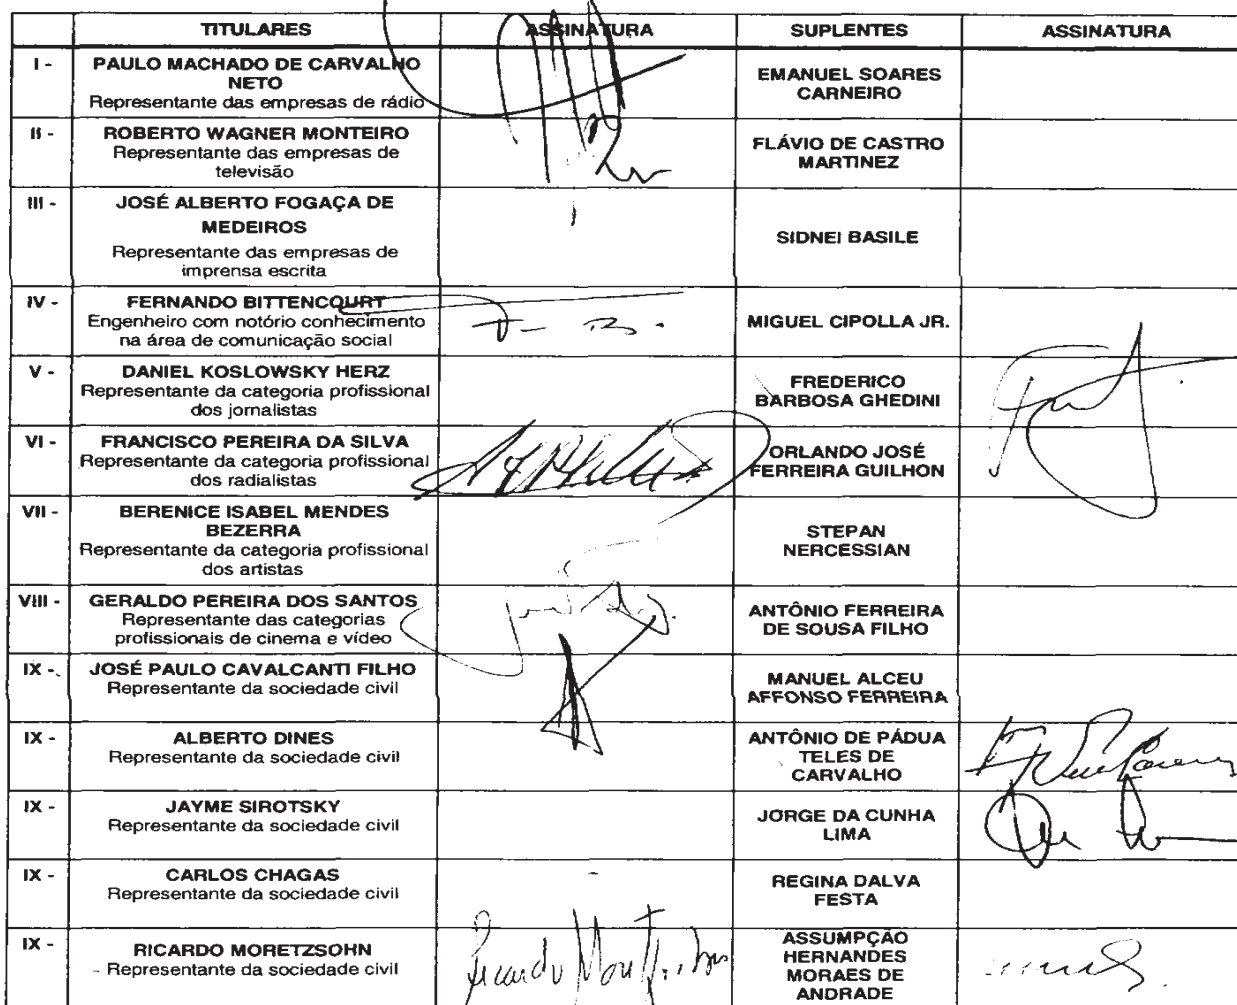 TITULARES ASSINATURA SUPLENTES ASSINATURA
I - PAULO MACHADO DE CARVALHO
NETO
Representante das empresas de rádio
EMANUEL SOARES
CARNEIRO
II - ROBERTO WAGNER MONTEIRO
Representante das empresas de
televisão
FLÁVIO DE CASTRO
MARTINEZ
III - JOSÉ ALBERTO FOGAÇA DE
MEDEIROS
Representante das empresas de
imprensa escrita
SIDNEI BASILE
IV - FERNANDO BITTENCOURT
Engenheiro com notório conhecimento
na área de comunicação social
MIGUEL CIPOLLA JR.
V - DANIEL KOSLOWSKY HERZ
Representante da categoria profissional
dos jornalistas
FREDERICO
BARBOSA GHEDINI
VI - FRANCISCO PEREIRA DA SILVA
Representante da categoria profissional
dos radialistas
ORLANDO JOSÉ
FERREIRA GUILHON
VII - BERENICE ISABEL MENDES
BEZERRA
Representante da categoria profissional
dos artistas
STEPAN
NERCESSIAN
VIII - GERALDO PEREIRA DOS SANTOS
Representante das categorias
profissionais de cinema e vídeo
ANTÔNIO FERREIRA
DE SOUSA FILHO
IX - JOSÉ PAULO CAVALCANTI FILHO
Representante da sociedade civil
MANUEL ALCEU
AFFONSO FERREIRA
IX - ALBERTO DINES
Representante da sociedade civil
ANTÔNIO DE PÁDUA
TELES DE
CARVALHO
IX - JAYME SIROTSKY
Representante da sociedade civil
JORGE DA CUNHA
LIMA
IX - CARLOS CHAGAS
Representante da sociedade civil
REGINA DALVA
FESTA
IX - RICARDO MORETZSOHN
Representante da sociedade civil
Ricardo Moretzsohn
ASSUMPÇÃO
HERNANDES
MORAES DE
ANDRADE